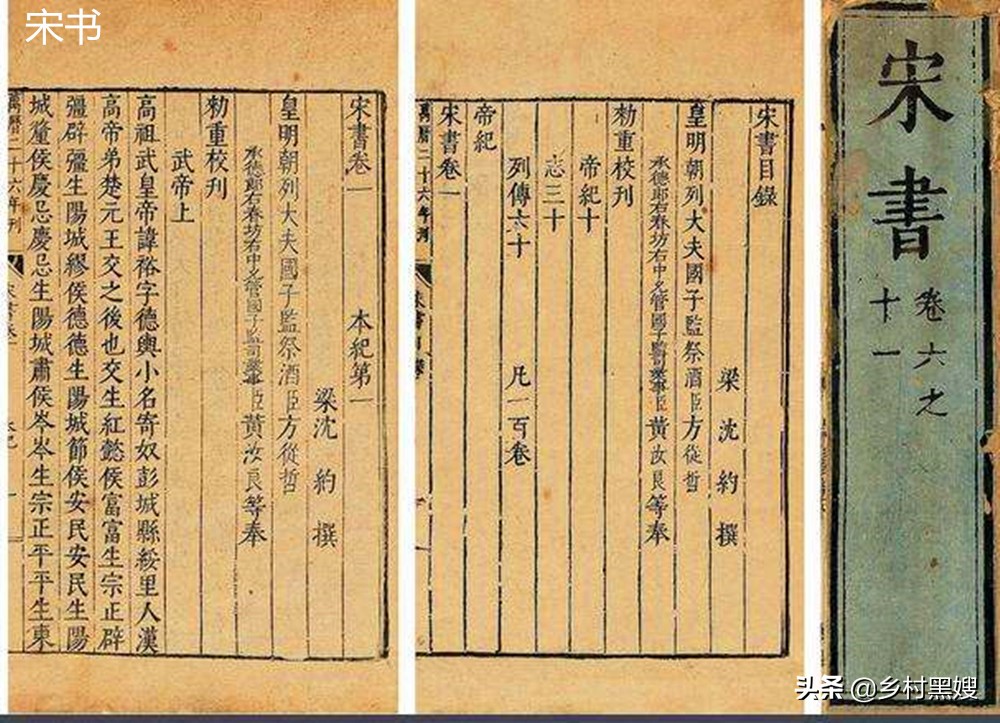 宋书
宋書卷一 本紀第一
梁沈約撰
皇明朝列大夫國子監祭酒臣方從哲
承德郎右春坊右中允管國子監司業事臣黃汝良等奉
勑重校刊
武帝上
高祖武皇帝諱裕字德輿小名寄奴彭城縣綏里人漢
高帝弟楚元王交之後也交生紅懿侯富富生宗正辟
彊辟彊生陽城繆侯德德生陽城節侯安民安民生陽
城釐侯慶忌慶忌生陽城肅侯岑岑生宗正平平生東
萬曆二十六年刊
宋書目錄
梁沈約撰
皇明朝列大夫國子監祭酒臣方從哲
承德郎右春坊右中允管國子監司業事臣黃汝良等奉
勑重校刊
帝紀十
志三十
列傳六十 凡一百卷
帝紀
宋書卷一
萬曆二十六年刊
宋書
卷六之
十一
头条 @乡村黑嫂